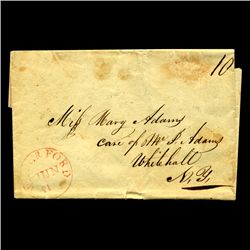 10
Miss Mary Adams
care of Mr J. Adams
Whitehall
N.Y.
FORD
JUN